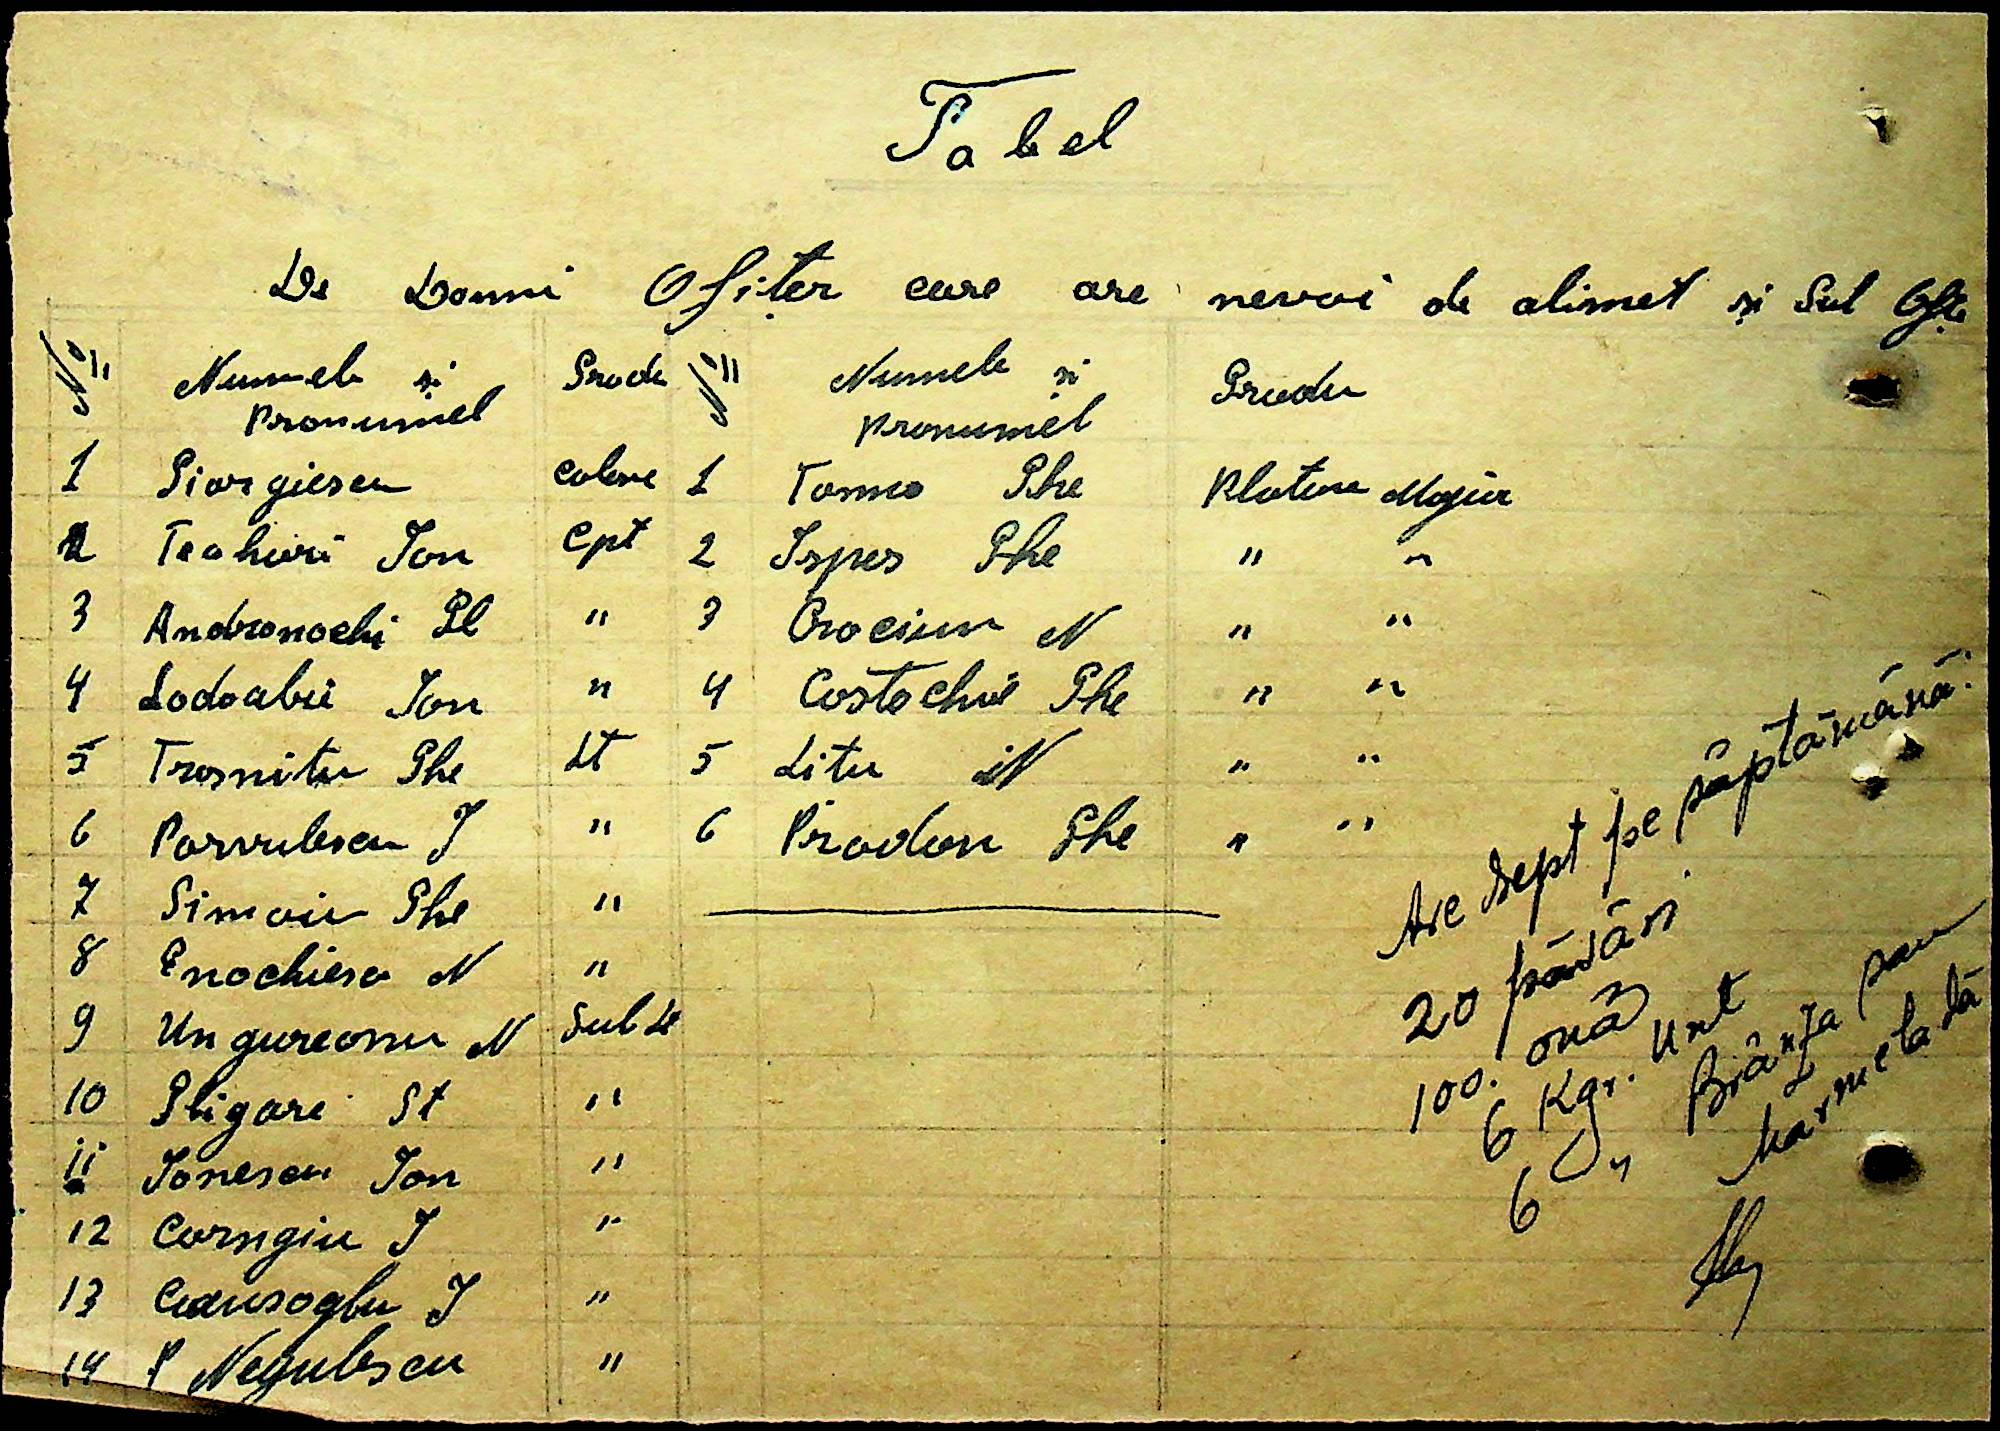 Tabel
De Domni Ofiter care are nevoi de alimet și Sul Ofțe
No Numele și Gradu No Numele si Gradu
Pronumiel pronumiel
1 Giorgiescu Colone 1 Toma Ghe Plotone Major
2 Teohari Ion Cpt 2 Ispes Ghe " "
3 Andronochi Gl " 3 Crociun N " "
4 Lodoabii Ion " 4 Costochie Ghe " "
5 Trosnitu Ghe Lt 5 Litu N " "
6 Parvulescu I " 6 Prodon Ghe " "
7 Simoiu Ghe "
8 Enochiescu N "
9 Ungureonu N Sub Lt
10 Pligare St "
11 Ionescu Ion "
12 Corngiu I "
13 Causoglu I "
14 P Negulescu "
Are dept pe săptămână.
20 pâini
100. ouă
6 Kgr. Unt
6 " Brânza sau
Marmeladă